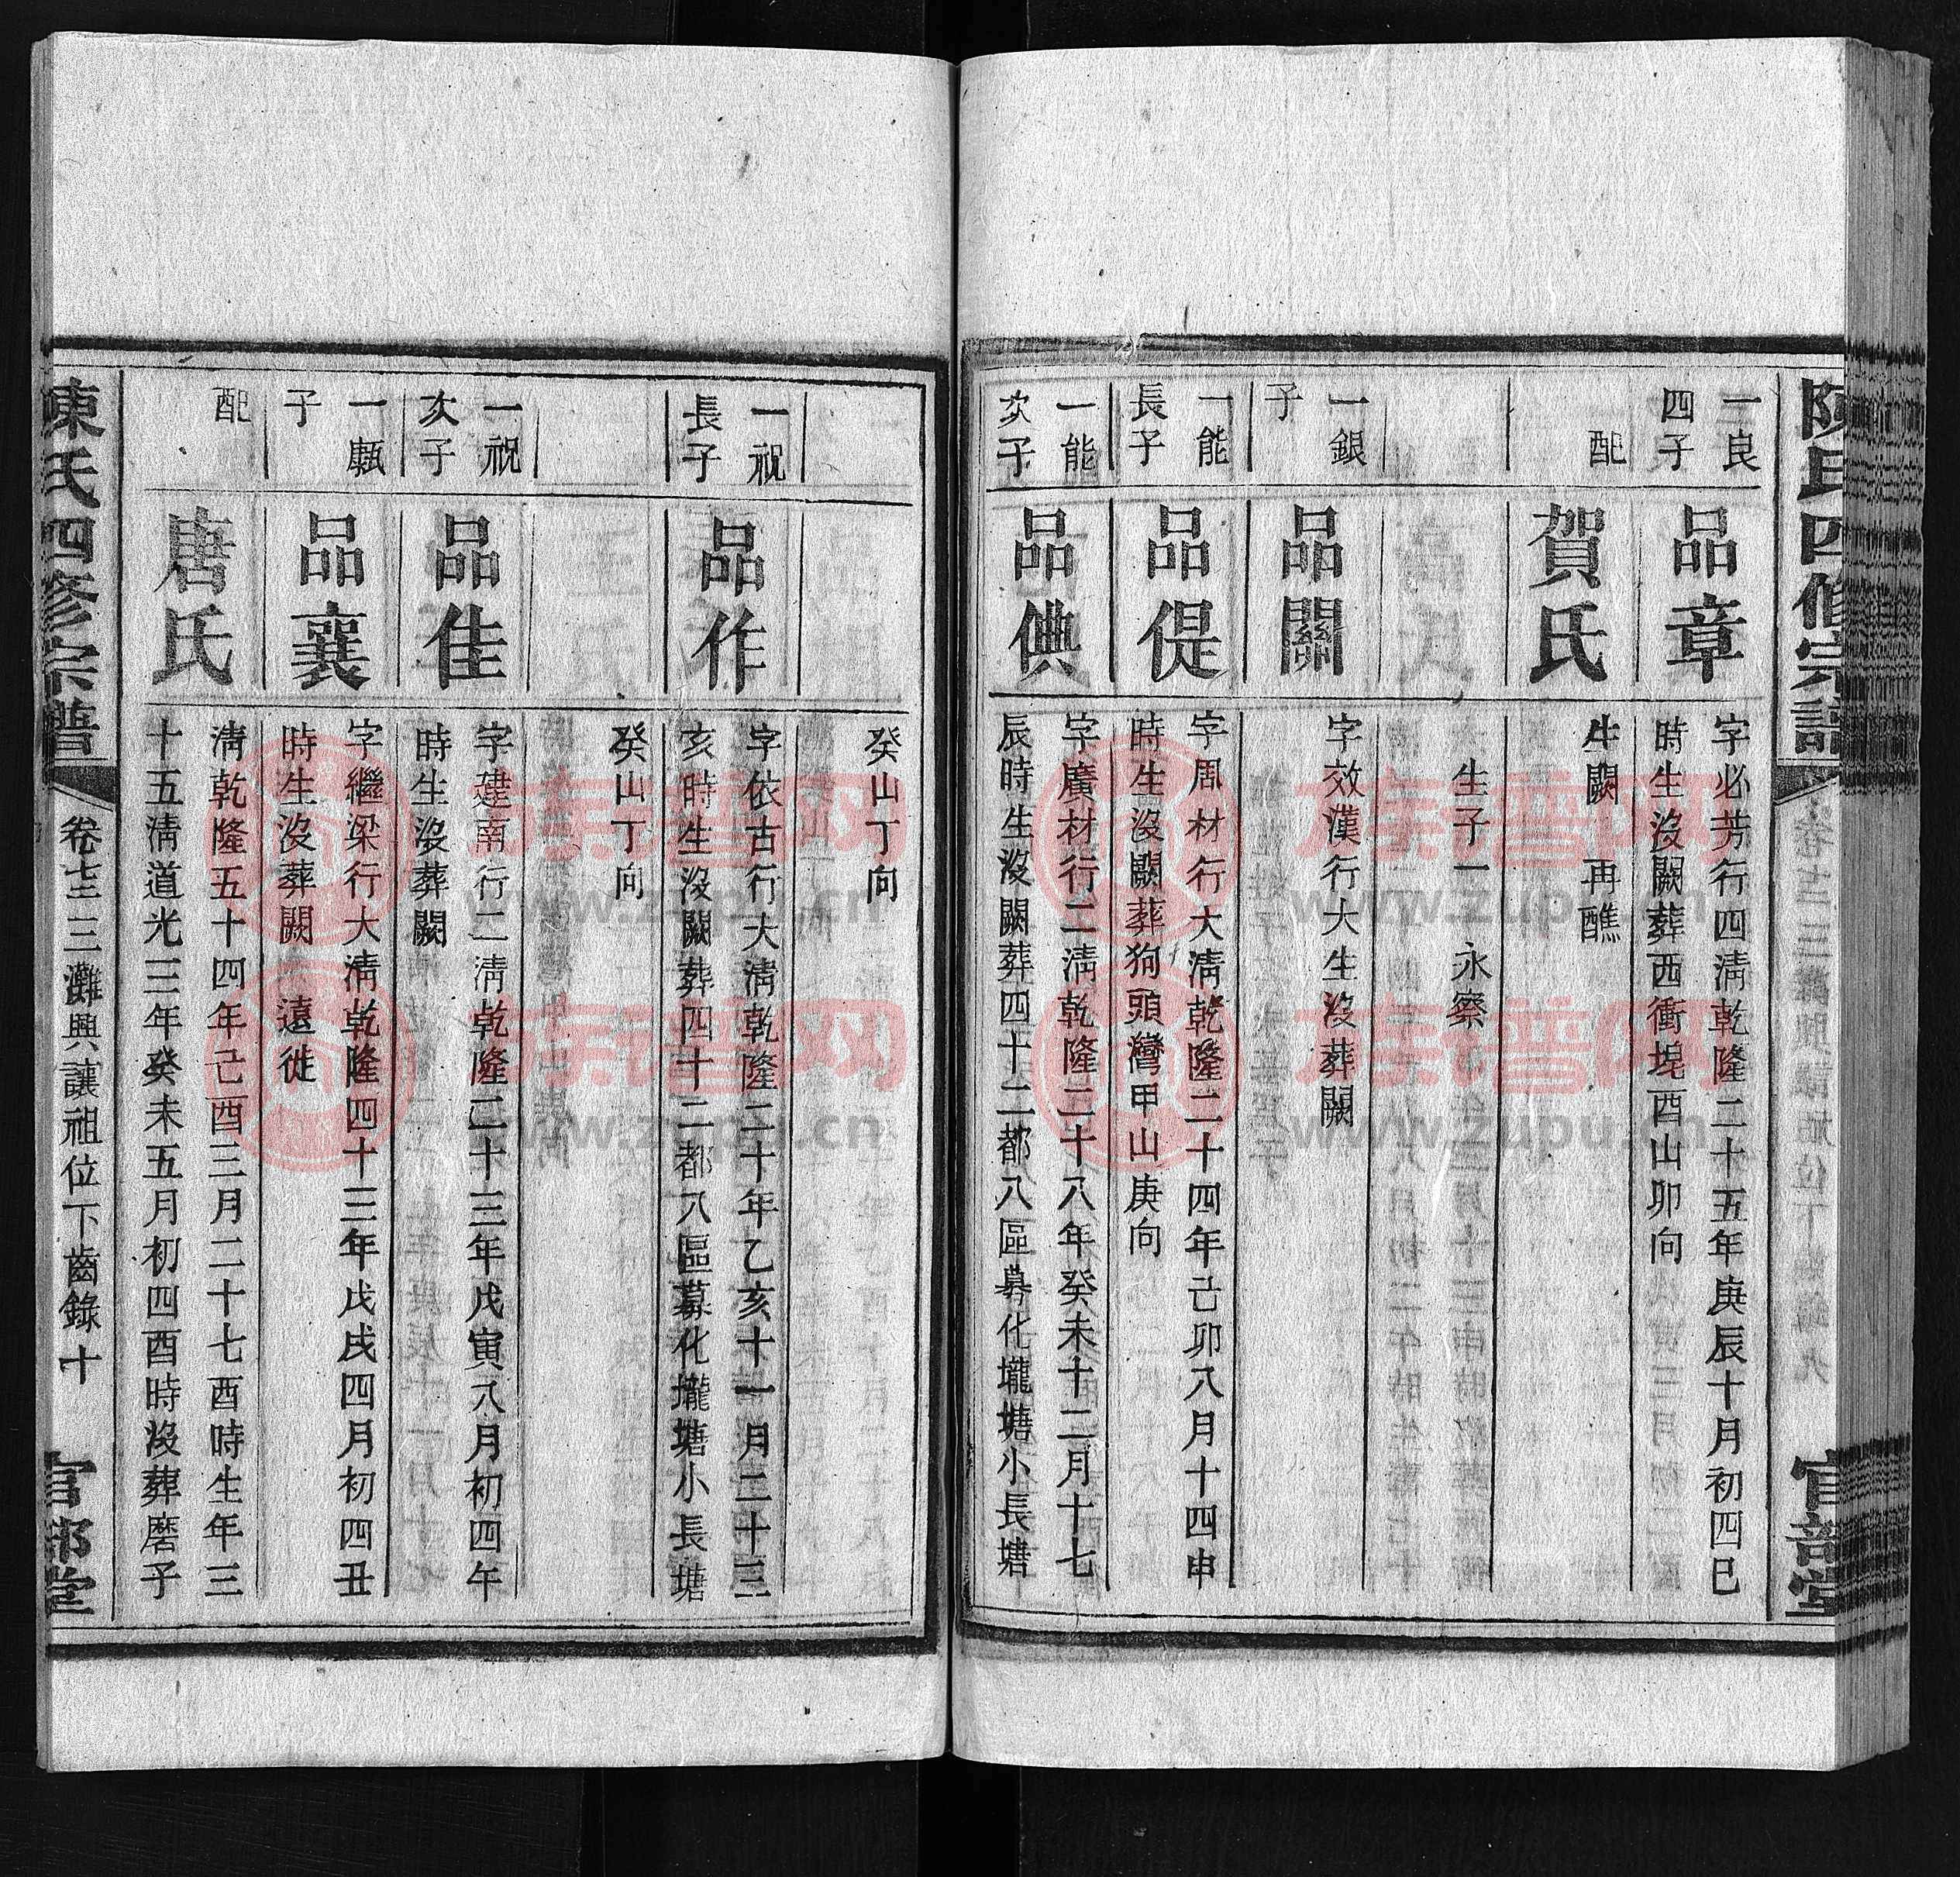 陳氏四修宗譜
官部堂
一良
四子
品章
字必芳行四淸乾隆二十五年庚辰十月初四巳
時生沒闕葬西衝垸酉山卯向
配
賀氏
生闕 再醮
生子一 永察
一銀
子
品關
字效漢行大生沒葬闕
一能
長子
品偍
字周材行大淸乾隆二十四年己卯八月十四申
時生沒闕葬狗頭灣甲山庚向
一能
次子
品倎
字廣材行二淸乾隆二十八年癸未十二月十七
辰時生沒闕葬四十二都八區募化壠塘小長塘
癸山丁向
一祝
長子
品作
字依古行大淸乾隆二十年乙亥十一月二十三
亥時生沒闕葬四十二都八區募化壠塘小長塘
癸山丁向
一祝
次子
品佳
字建南行二淸乾隆二十三年戊寅八月初四午
時生沒葬闕
一
子
品襄
字繼梁行大淸乾隆四十三年戊戌四月初四丑
時生沒葬闕 遠徙
配
唐氏
淸乾隆五十四年己酉三月二十七酉時生年三
十五淸道光三年癸未五月初四酉時沒葬磨子
陳氏四修宗譜
卷七三三灘興讓祖位下齒錄十
官部堂
族谱网
www.zupu.cn
族谱网
www.zupu.cn
族谱网
www.zupu.cn
族谱网
www.zupu.cn